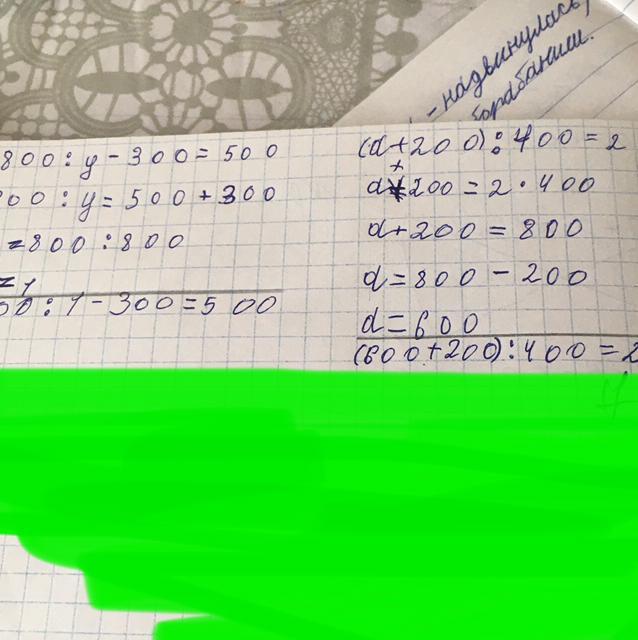 - надвинулась,
барабанши.
800 : y - 300 = 500
800 : y = 500 + 300
= 800 : 800
= 1
00 : 1 - 300 = 500
(d + 200) : 400 = 2
d + 200 = 2 · 400
d + 200 = 800
d = 800 - 200
d = 600
(600 + 200) : 400 = 2